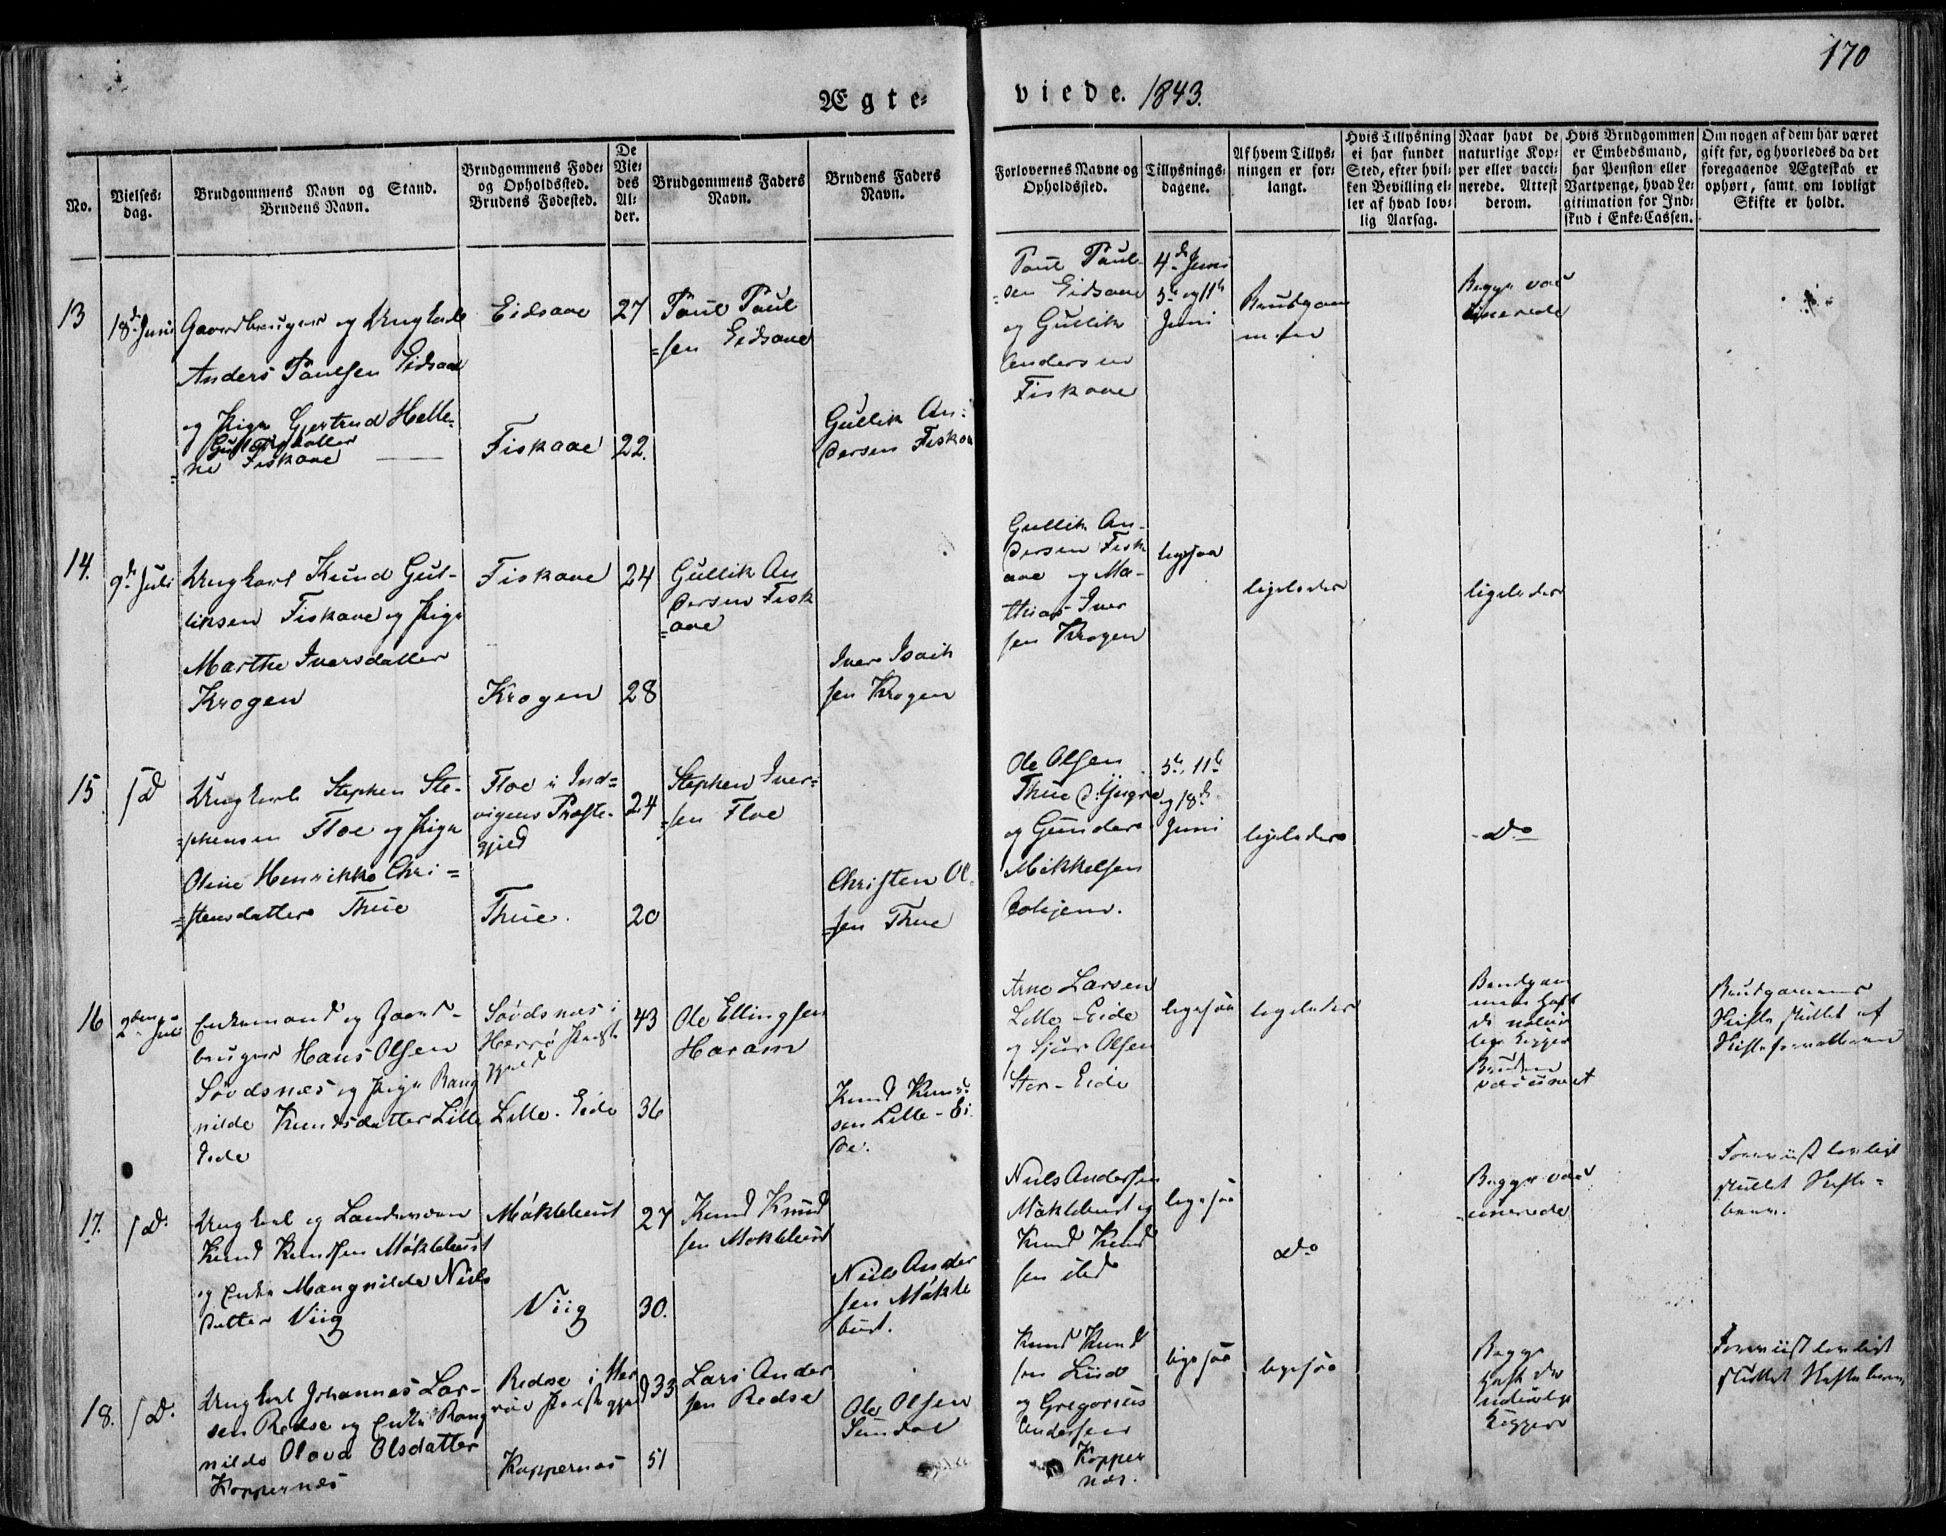 170
Ægte-
viede. 1843.
No.
Vielses-
dag.
Brudgommens Navn og Stand.
Brudens Navn.
Brudgommens Føde-
og Opholdssted.
Brudens Fødested.
De
Vie-
des
Al-
der.
Brudgommens Faders
Navn.
Brudens Faders
Navn.
Forlovernes Navne og
Opholdssted.
Tillysnings-
dagene.
Af hvem Tillys-
ningen er for-
langt.
Hvis Tillysning
ei har fundet
Sted, efter hvil-
ken Bevilling el-
ler af hvad lov-
lig Aarsag.
Naar havt de
naturlige Kop-
per eller vacci-
nerede. Attest
derom.
Hvis Brudgommen
er Embedsmand,
har Pension eller
Vartpenge, hvad Le-
gitimation for Ind-
skud i Enke-Cassen.
Om nogen af dem har været
gift før, og hvorledes da det
foregaaende Ægteskab er
ophørt, samt om lovligt
Skifte er holdt.
13
18d Juni
Gaardbruger og Ungkarl
Anders Paulsen Eidsaae
og Pige Gjertrud Helle-
Gulliksdatter
ne Fiskaae
Eidsaae
Fiskaae
27
22.
Poul Poul
sen Eidsaae
Gullik An-
dersen Fiskaae
Poul Poul
sen Eidsaae
og Gullik
Andersen
Fiskaae
4d Juni
5te og 11te
Juni
Brudgom
men
Begge vac
cinerede
14.
9de Juli
Ungkarl Knud Gul-
liksen Fiskaae og Pige
Marthe Iversdatter
Krogen
Fiskaae
Krogen
24
28
Gullik An
dersen Fisk
aae
Iver Isach
sen Krogen
Gullik An-
dersen Fisk
aae og Ma-
thias Iver
sen Krogen
ligesaa
ligeledes
ligeledes
15
s D
Ungkarl Stephen Ste-
phensen Floe og Pige
Oline Henrikke Chri-
stensdatter Thue
Floe i Ind-
vigens Præste-
gjeld
Thue.
24
20
Stephen Iver-
sen Floe
Christen Ol-
sen Thue
Ole Olsen
Thue
og Gunder
Mikkelsen
5te, 11te
og 18de
Juni
ligeledes
do
16
2den Juli
Enkemand og Gaard-
bruger Hans Olsen
Søvdsnæs og Pige Rang
nilde Knudsdatter Lille
Eide
Søvdsnæs i
Herrø Præste
gjeld
Lille-Eide
43
36
Ole Ellingsen
Haram
Knud Knud
sen Lille-Ei
de.
Arne Larsen
Lille-Eide
og Sjur Olsen
Stor-Eide
ligesaa
ligeledes
Brudgom
men havt
de naturlige
Kopper
Bruden
vaccineret
Brudgommens
Skifte sluttet af
Skifteforvalteren
17.
s D.
Ungkarl og Landeværn
Knud Knudsen Møklebust
og Enke Mangnilde Niels
datter Viig
Møklebust
Viig
27
30.
Knud Knud
sen Møklebust
Niels Ander
sen Møkle
bust.
Niels Andersen
Møklebust og
Knud Knud
sen ibid
ligesaa
do
Begge vac
cinerede
Foreviist lovligt
sluttet Skifte-
brev.
18.
s D.
Ungkarl Johannes Lar-
sen Redse og Enke Rang
nilde Olava Olsdatter
Koppernæs
Redse i Her
røe Præstegjeld
Koppernæs
33
51
Lars Ander
sen Redse
Ole Olsen
Sundal
Knud Knud
sen Liid
og Gregorius
Andersen
Kopper
næs.
ligesaa
ligesaa
Begge
havt de
naturlige
Kopper
Foreviist lovligt
sluttet Skiftebrev